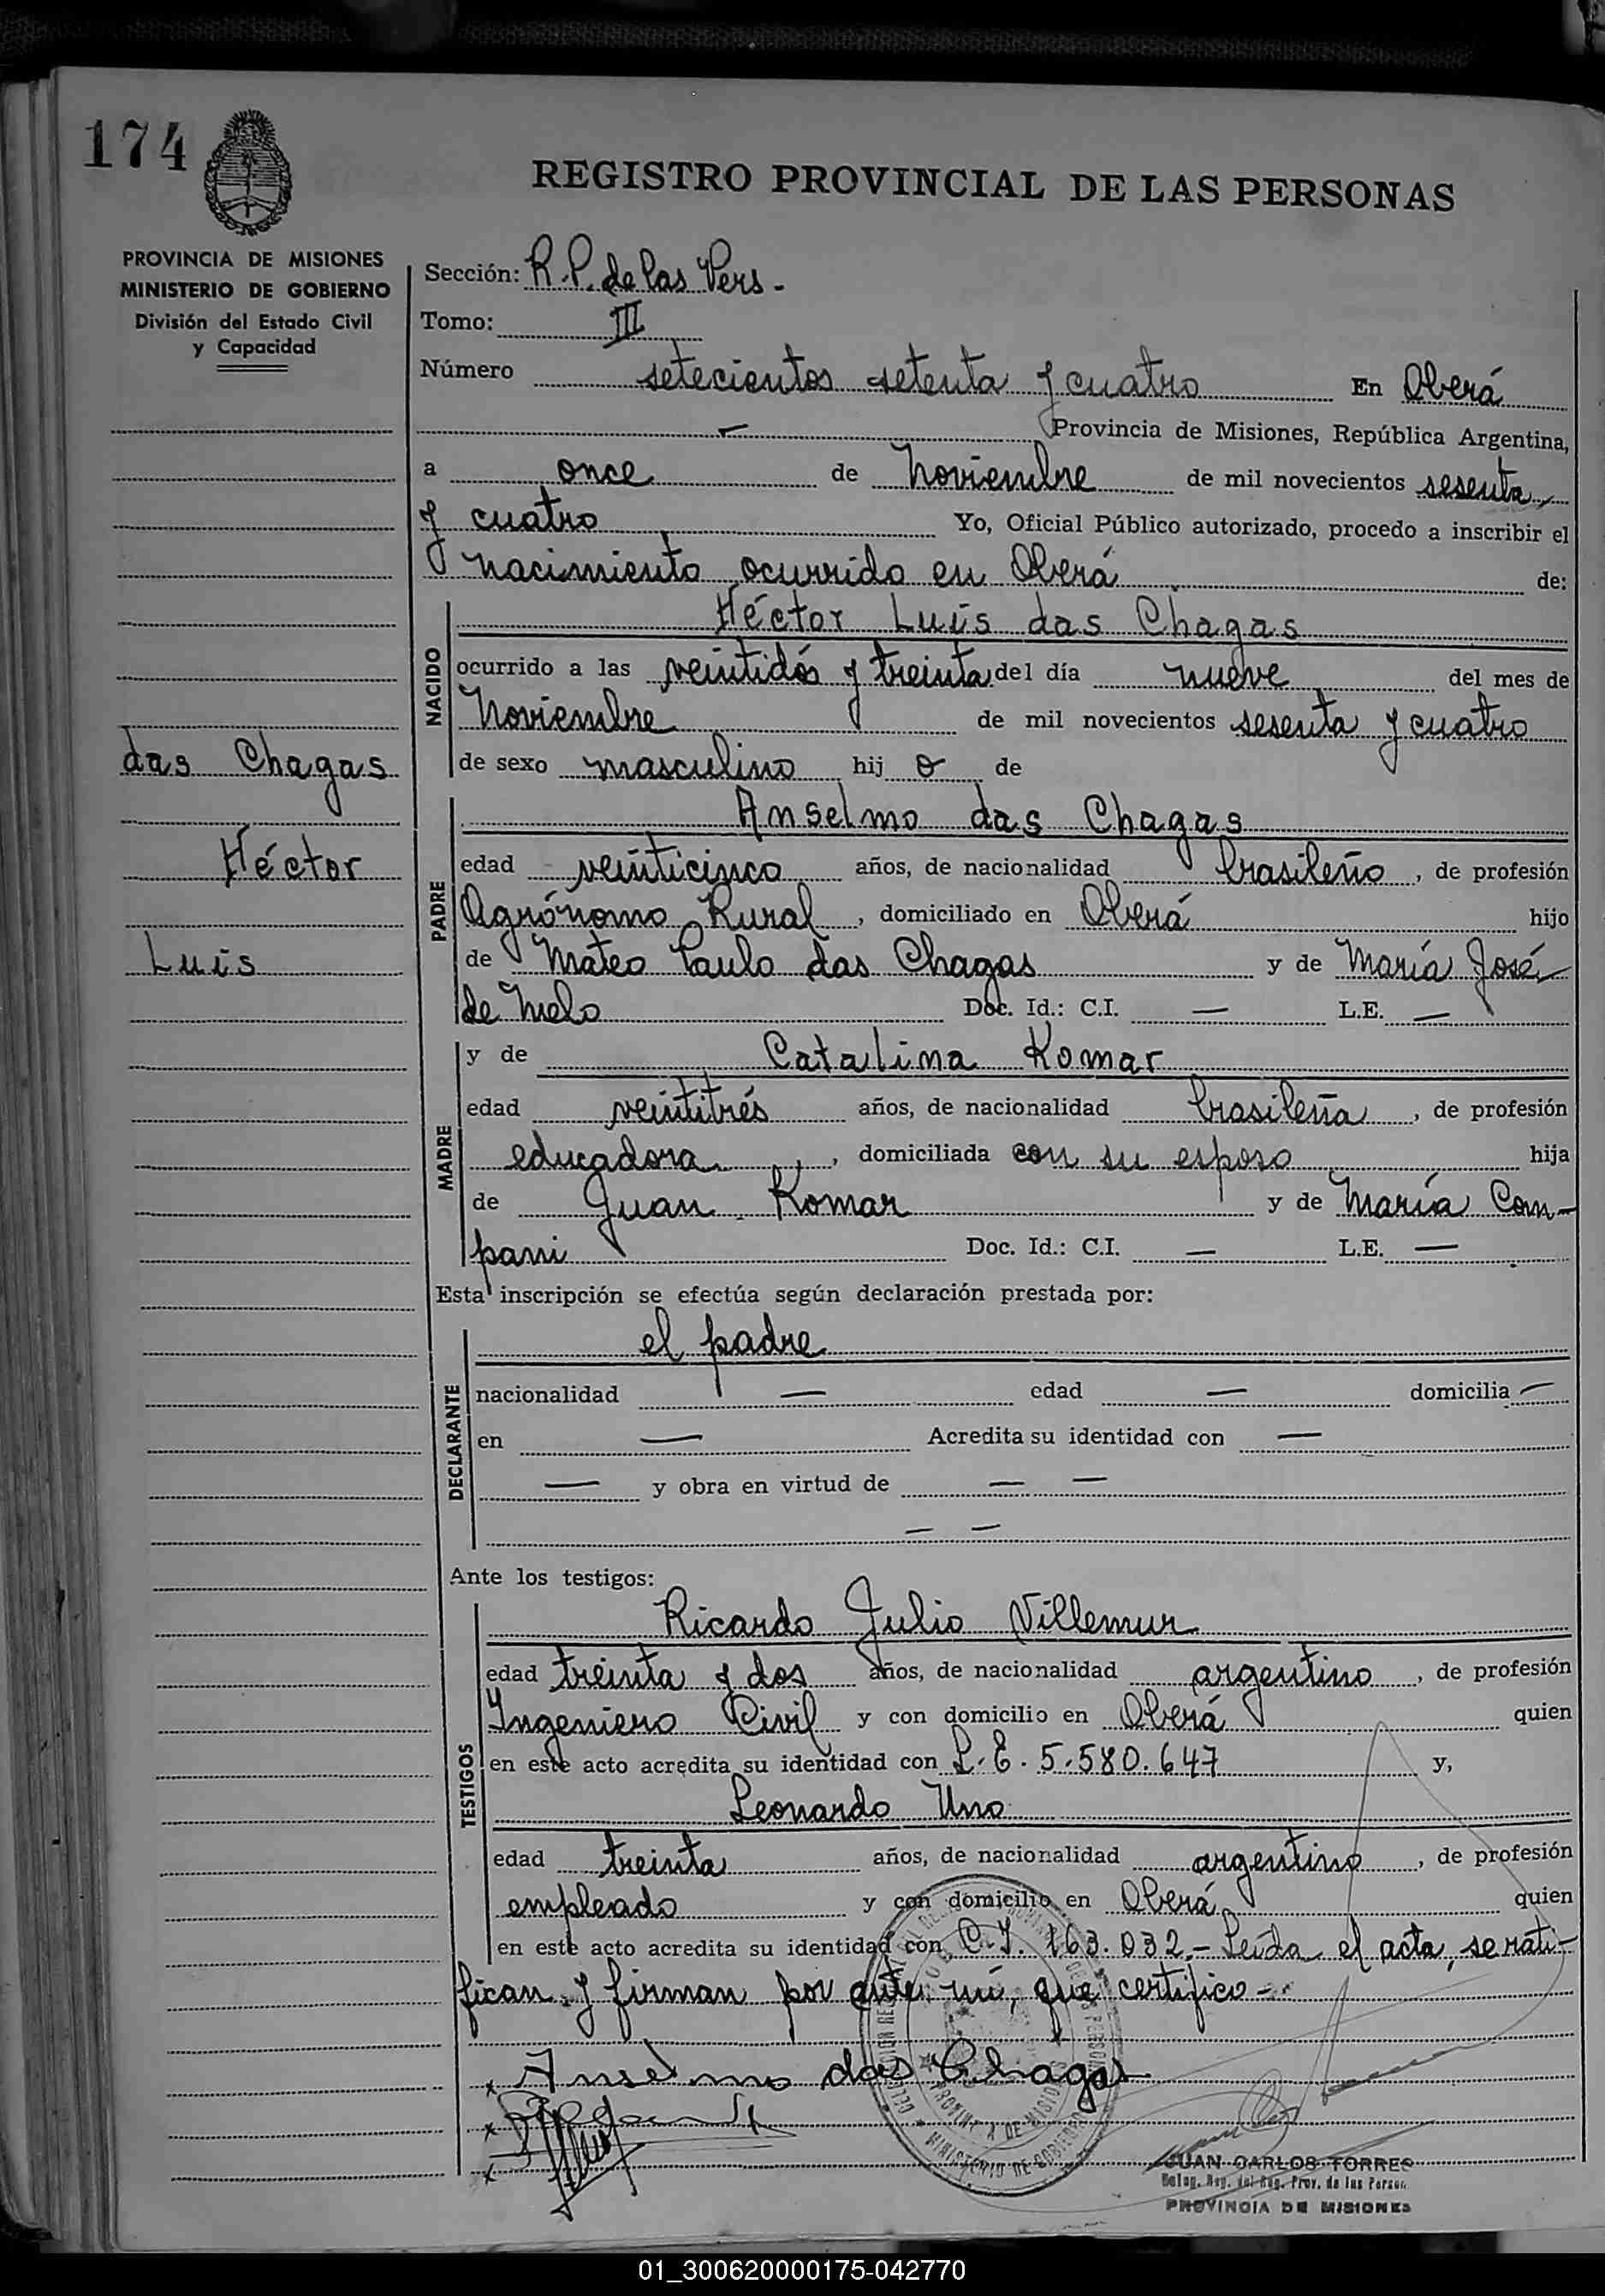 174
REGISTRO PROVINCIAL DE LAS PERSONAS
PROVINCIA DE MISIONES
MINISTERIO DE GOBIERNO
División del Estado Civil
y Capacidad
Sección: R.P. de las Pers.-
Tomo: III
Número setecientos setenta y cuatro En Oberá
Provincia de Misiones, República Argentina,
a once de Noviembre de mil novecientos sesenta
y cuatro Yo, Oficial Público autorizado, procedo a inscribir el
nacimiento ocurrido en Oberá de:
NACIDO
Héctor Luis das Chagas
ocurrido a las veintidós y treinta del día nueve del mes de
Noviembre de mil novecientos sesenta y cuatro
de sexo masculino hij o de
das Chagas
Héctor
Luis
PADRE
Anselmo das Chagas
edad veinticinco años, de nacionalidad brasileño, de profesión
Agrónomo Rural, domiciliado en Oberá hijo
de Mateo Paulo das Chagas y de María José
de Melo Doc. Id.: C.I. — L.E. —
MADRE
y de Catalina Komar
edad veintitrés años, de nacionalidad brasileña, de profesión
educadora, domiciliada con su esposo hija
de Juan Komar y de María Com-
pani Doc. Id.: C.I. — L.E. —
Esta inscripción se efectúa según declaración prestada por:
DECLARANTE
el padre
nacionalidad — edad — domicilia —
en — Acredita su identidad con —
— y obra en virtud de — —
— —
Ante los testigos:
TESTIGOS
Ricardo Julio Villemur
edad treinta y dos años, de nacionalidad argentino, de profesión
Ingeniero Civil y con domicilio en Oberá quien
en este acto acredita su identidad con L.E. 5.580.647 y,
Leonardo Uno
edad treinta años, de nacionalidad argentino, de profesión
empleado y con domicilio en Oberá quien
en este acto acredita su identidad con C.I. 163.032.- Leída el acta, se rati-
fican y firman por ante mí, que certifico.-
x Anselmo das Chagas
x
x
MINISTERIO DE GOBIERNO
PROVINCIA DE MISIONES
JUAN CARLOS TORRES
Deleg. Reg. del Reg. Prov. de las Person.
PROVINCIA DE MISIONES
01_300620000175-042770